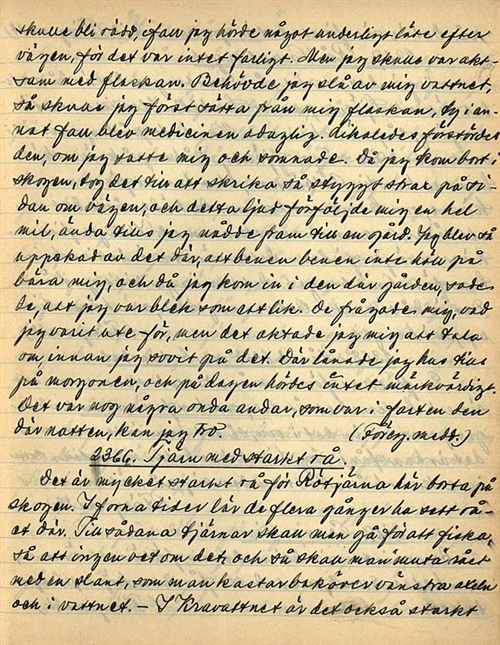 skulle bli rädd, ifall jag hörde något underligt läte efter
vägen, för det var intet farligt. Men jag skulle vara akt-
sam med flaskan. Behövde jag slå av mig vattnet,
så skulle jag först sätta från mig flaskan, ty i an-
nat fall blev medicinen odaglig. Likaledes förstördes
den, om jag satte mig och somnade. Då jag kom bort i
skogen, tog det till att skrika så styggt strax på si-
dan om vägen, och detta ljud förföljde mig en hel
mil, ända tills jag nådde fram till en gård. Jag blev så
uppskad av det där, att benen benen inte höll på
bära mig, och då jag kom in i den där gården, sades
de, att jag var blek som ett lik. De frågades mig, vad
jag varit ute för, men det aktade jag mig att tala
om innan jag sovit på det. Där lånade jag hus tills
på morgonen, och på dagen hördes intet märkvärdigt.
Det var nog några onda andar, som var i farten den
där natten, kan jag tro. (Föreg. medd.)
2366. Tjärn med starkt rå.
Det är mycket starkt rå för Rötjärna där borta på
skogen. I forna tider lär de flera gånger ha sett rå-
et där. Till sådana tjärnar skall man gå för att fiska,
så att ingen vet om det, och så skall man "muta" rået
med en slant, som man kastar baköver vänstra axeln
och i vattnet. - I Kravattnet är det också starkt